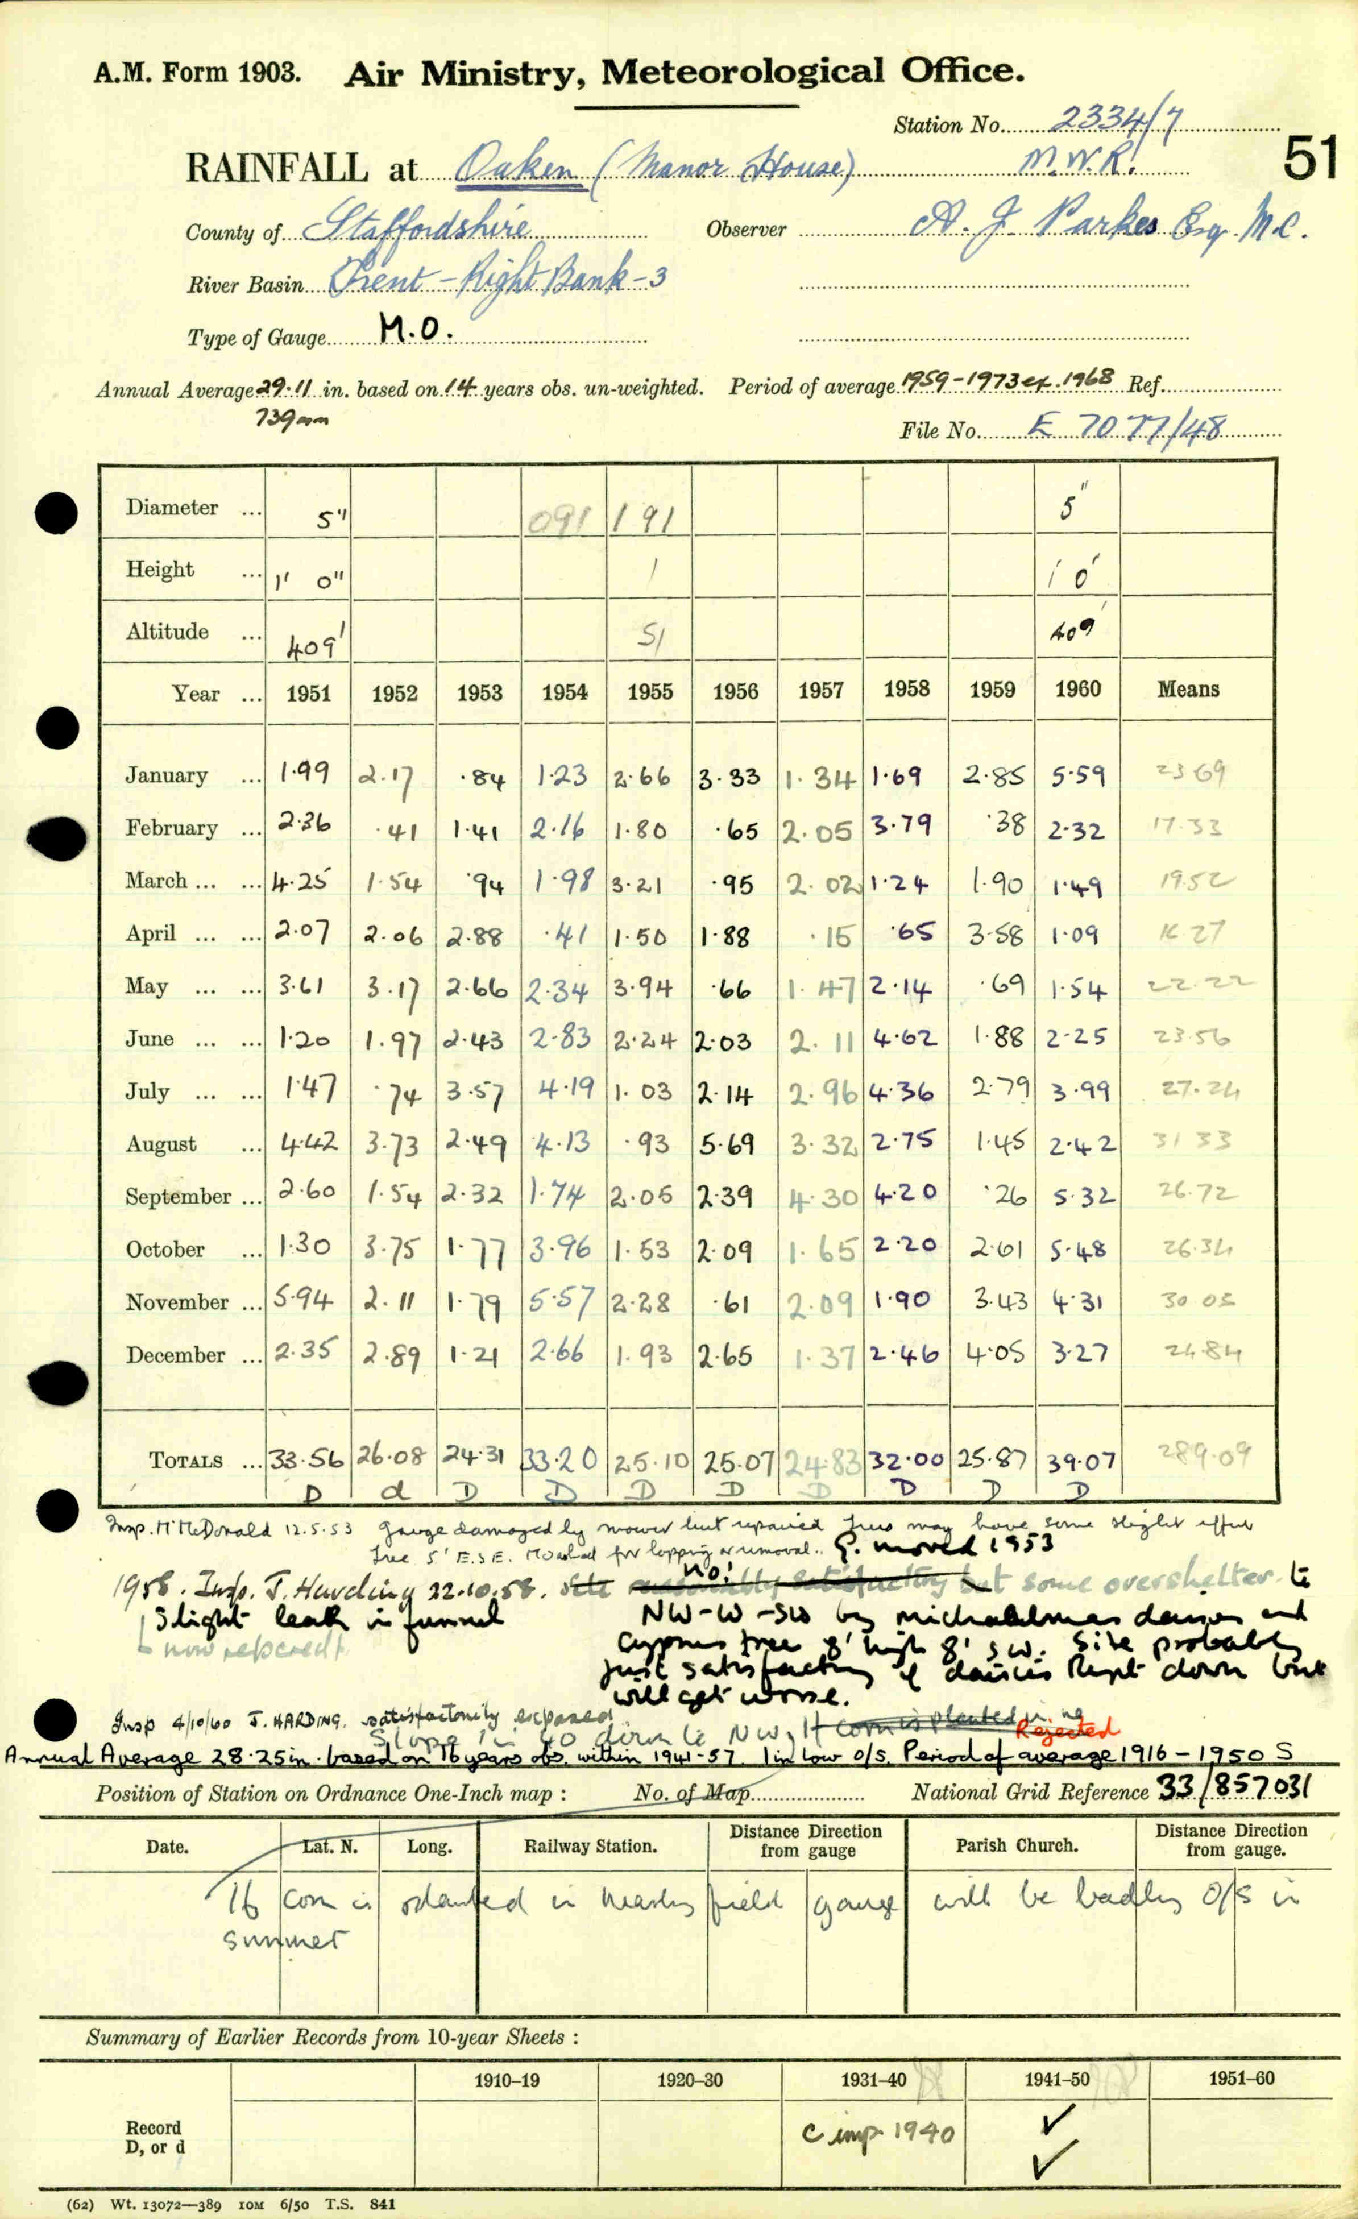 A.M. Form 1903. Air Ministry, Meteorological Office.
Station No. 2334/7
RAINFALL at Oaken (Manor House) M.W.R. 51
County of Staffordshire Observer A. J. Parkes Esq. M.C.
River Basin Trent - Right Bank - 3
Type of Gauge M.O.
Annual Average 29.11 in. based on 14 years obs. un-weighted. Period of average 1959-1973 ex. 1968 Ref.
739mm
File No. E 7077/48
Diameter ... 5" 091 191 5"
Height ... 1' 0" 1 1' 0'
Altitude ... 409' 51 409'
Year ... 1951 1952 1953 1954 1955 1956 1957 1958 1959 1960 Means
January ... 1.99 2.17 .84 1.23 2.66 3.33 1.34 1.69 2.85 5.59 23 69
February ... 2.36 .41 1.41 2.16 1.80 .65 2.05 3.79 .38 2.32 17.33
March ... ... 4.25 1.54 .94 1.98 3.21 .95 2.02 1.24 1.90 1.49 19.52
April ... ... 2.07 2.06 2.88 .41 1.50 1.88 .15 .65 3.58 1.09 16 27
May ... ... 3.61 3.17 2.66 2.34 3.94 .66 1.47 2.14 .69 1.54 22.22
June ... ... 1.20 1.97 2.43 2.83 2.24 2.03 2.11 4.62 1.88 2.25 23.56
July ... ... 1.47 .74 3.57 4.19 1.03 2.14 2.96 4.36 2.79 3.99 27.24
August ... 4.42 3.73 2.49 4.13 .93 5.69 3.32 2.75 1.45 2.42 31 33
September ... 2.60 1.54 2.32 1.74 2.05 2.39 4.30 4.20 .26 5.32 26.72
October ... 1.30 3.75 1.77 3.96 1.53 2.09 1.65 2.20 2.61 5.48 26.34
November ... 5.94 2.11 1.79 5.57 2.28 .61 2.09 1.90 3.43 4.31 30 03
December ... 2.35 2.89 1.21 2.66 1.93 2.65 1.37 2.46 4.05 3.27 24.84
TOTALS ... 33.56 26.08 24.31 33.20 25.10 25.07 24.83 32.00 25.87 39.07 289.09
D d D D D D D D D D
Insp. M McDonald 12.5.53 gauge damaged by mower but repaired Trees may have some slight effect
Tree 5' E.S.E. marked for lopping or removal. G. moved 1953
1958. Insp. J. Harding 22.10.58. Site reasonably satisfactory but no! some overshelter to
Slight leak in funnel NW-W-SW by michaelmas daisies and
now repaired cypress tree 8' high 8' SW. Site probably
just satisfactory if daisies kept down but
will get worse.
Insp 4/10/60 J. HARDING. satisfactorily exposed
Slope 1 in 40 down to NW, If corn is planted in ne Rejected
Annual Average 28.25 in. based on 16 years obs. within 1941-57. 1 in low o/s. Period of average 1916-1950 S
Position of Station on Ordnance One-Inch map : No. of Map National Grid Reference 33/857031
Date. Lat. N. Long. Railway Station. Distance from gauge Direction Parish Church. Distance from gauge. Direction
If corn is planted in nearby field gauge will be badly o/s in
summer
Summary of Earlier Records from 10-year Sheets :
1910–19 1920–30 1931–40 1941–50 1951–60
Record D, or d C imp 1940 ✓
✓
(62) Wt. 13072—389 10M 6/50 T.S. 841